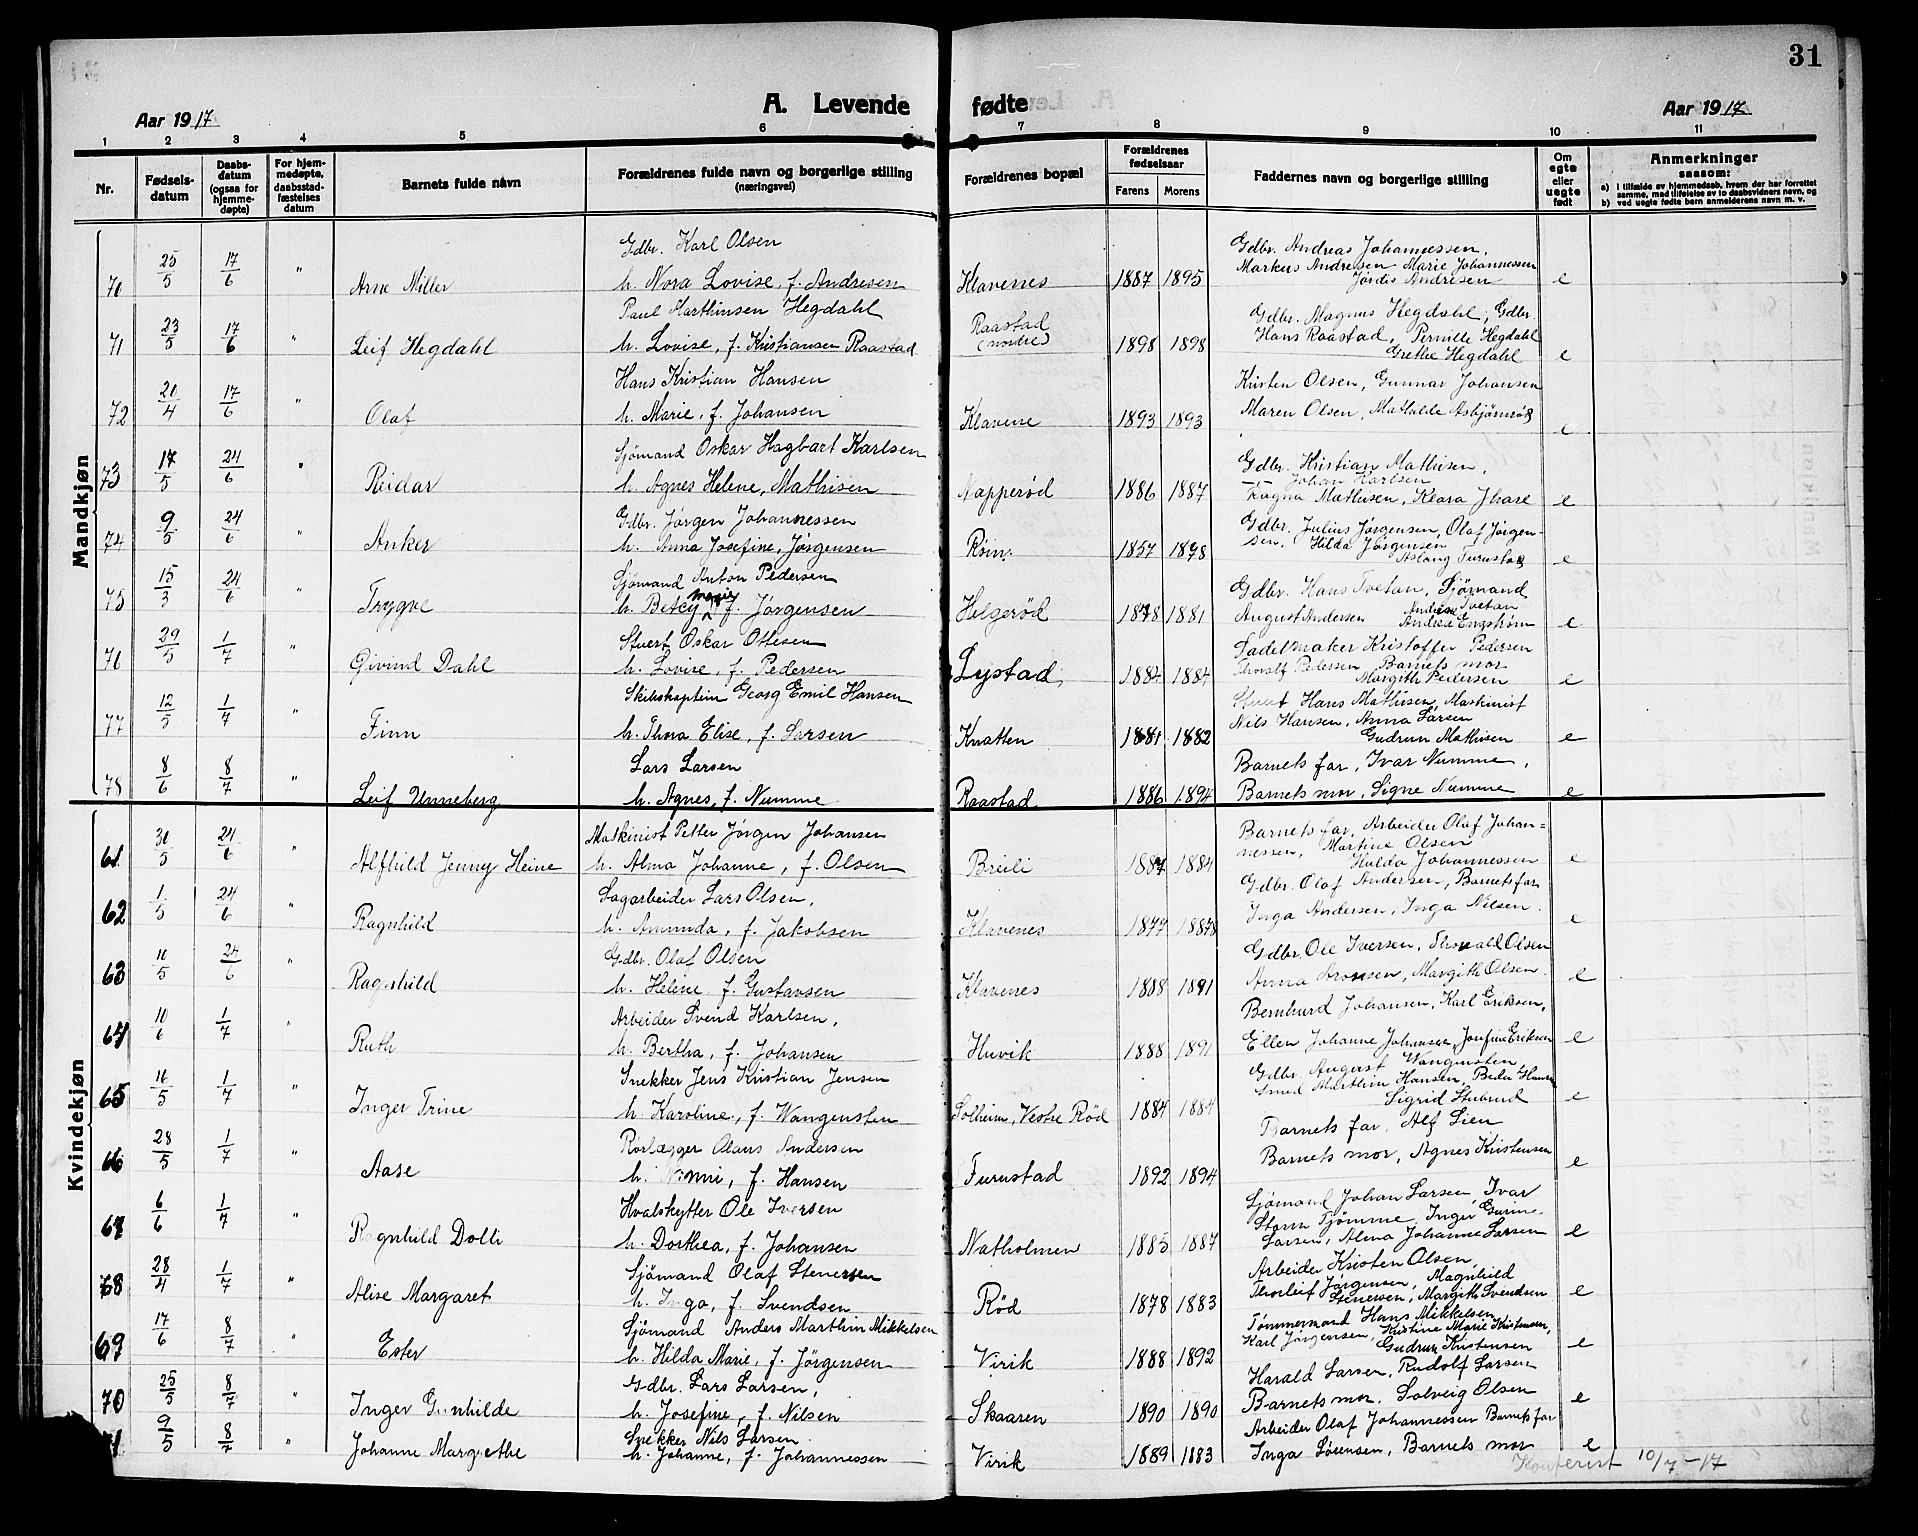 31
Aar 1917
A. Levende
fødte
Aar 1917
1 2 3 4 5 6 7 8 9 10 11
Nr.
Fødsels-
datum
Daabs-
datum
(ogsaa for
hjemme-
døpte)
For hjem-
medøpte,
daabsstad-
fæstelses
datum
Barnets fulde navn
Forældrenes fulde navn og borgerlige stilling
(næringsvei)
Forældrenes bopæl
Forældrenes
fødselsaar
Farens
Morens
Faddernes navn og borgerlige stilling
Om
egte
eller
uegte
født
Anmerkninger
saasom:
a) i tilfælde av hjemmedaab, hvem der har forrettet
samme, med tilføielse av to daabsvidners navn, og
b) ved uegte fødte barn anmelderens navn m. v.
Mandkjøn
Gdbr. Karl Olsen
Gdbr. Andreas Johannessen,
Markus Andresen Marie Johannessen
70 25/5 17/6 " Arne Miller h. Nora Lovise, f. Andresen Klavenes 1887 1895 Jordis Andresen e
Paul Marthinsen Hegdahl
Gdbr. Magnus Hegdahl, Gdbr.
Raastad
Hans Raastad, Pernille Hegdahl
71 23/5 17/6 " Leif Hegdahl h. Lovise, f. Kristiansen Raastad (nordre) 1898 1898 Grethe Hegdahl e
Hans Kristian Hansen
Kristen Olsen, Gunnar Johansen
72 20/4 17/6 " Olaf h. Marie, f. Johansen Klavene 1893 1893 Maren Olsen, Mathilde Asbjørnsrød e
Sjømand Oskar Hagbart Karlsen
Gdbr. Kristian Mathisen,
Johan Karlsen
73 17/5 24/6 " Reidar h. Agnes Helene, Mathisen Napperød 1886 1887 Ragna Mathisen, Klara e
Gdbr. Jørgen Johannessen
Gdbr. Julius Jørgensen, Olaf Jørgen-
sen, Hilda Jørgensen
74 9/5 24/6 " Anker h. Anna Josefine, Jørgensen Röin 1857 1878 Aslaug Furustad e
Sjømand Anton Pedersen
Gdbr. Hans Tvetan, Sjømand
Tvetan
75 15/3 24/6 " Trygve h. Betcy Marie f. Jørgensen Helgerød 1878 1881 August Andersen Andrea Engstrøm e
Stuert Oskar Ottesen
Sadelmaker Kristoffer Pedersen
Thoralf Pedersen, Barnets mor
76 29/5 1/7 " Øivind Dahl h. Lovise, f. Pedersen Lystad, 1884 1884 Margith Pedersen e
Skibskaptein Georg Emil Hansen
Stuert Hans Mathisen, Maskinist
Nils Hansen, Anna Larsen
77 12/5 1/7 " Finn h. Thora Elise, f. Larsen Knatten 1881 1882 Gudrun Mathisen e
Lars Larsen
Barnets far, Ivar Numme,
78 8/6 8/7 " Leif Unneberg h. Agnes, f. Numme Raastad 1886 1894 Barnets mor, Signe Numme e
Kvindekjøn
Maskinist Petter Jørgen Johansen
Barnets far, Arbeider Olaf Johan=
nessen, Martine Olsen
61 30/5 24/6 " Alfhild Jenny Heine h. Alma Johanne, f. Olsen Breili 1887 1884 Hulda Johannessen e
Sagarbeider Lars Olsen,
Gdbr. Olaf Andersen, Barnets far
62 1/5 24/6 " Ragnhild h. Amunda, f. Jakobsen Klavenes 1877 18878 Inga Andersen, Inga Nilsen. e
Gdbr. Olaf Olsen
Gdbr. Ole Iversen, Thorvald Olsen
63 11/5 24/6 " Ragnhild h. Helene f. Gustavsen Klavenes 1888 1891 Anna Aronsen, Margith Olsen. e
Arbeider Svend Karlsen,
Bernhard Johansen, Karl Eriksen,
64 10/6 1/7 " Ruth h. Bertha, f. Johansen Huvik 1888 1891 Ellen Johanne Johansen, Josefine Eriksen e
Snekker Jens Kristian Jensen
Gdbr. August Wangensten
Smed Marthin Hansen,
65 16/5 1/7 " Inger Trine h. Karoline, f. Wangensten Solheim, Vestre Rød 1884 1884 Sigrid Stubrud e
Rørlægger Olaus Andersen
Barnets far, Alf Lien
66 28/5 1/7 " Aase h. f. Hansen Furustad 1892 1894 Barnets mor, Agnes Kristensen e
Hvalskytter Ole Iversen
Sjømand Johan Larsen, Ivar
Storm Tjømme, Inger Gurine
67 6/6 1/7 " Ragnhild Dolli h. Dorthea, f. Johansen Natholmen 1885 1887 Larsen, Alma Johanne Larsen e
Sjömand Olaf Stenersen
Arbeider Kristen Olsen,
Thorleif Jørgensen, Magnhild
68 28/4 1/7 " Alise Margaret h. Inga, f. Svendsen Rød 1878 1883 Stenersen, Margith Svendsen e
Sjömand Anders Marthin Mikkelsen
Tømmermand Hans Mikkelsen
Karl Jørgensen, Kristine Marie Kristensen,
69 17/6 8/7 " Ester h. Hilda Marie, f. Jørgensen Virik 1888 1892 Gudrun Kristensen e
Gdbr. Lars Larsen,
Harald Larsen, Rudolf Larsen
70 25/5 8/7 " Inger Gunhilde h. Josefine, f. Nilsen Skaaren 1890 1890 Barnets mor, Solveig Olsen e
Snekker Nils Larsen
Arbeider Olaf Johannessen Barnets far
71 9/5 8/7 " Johanne Margrethe h. Johanne, f. Johannessen Virik 1889 1883 Inga Sörensen, Barnets mor e
Konferert 10/7-17